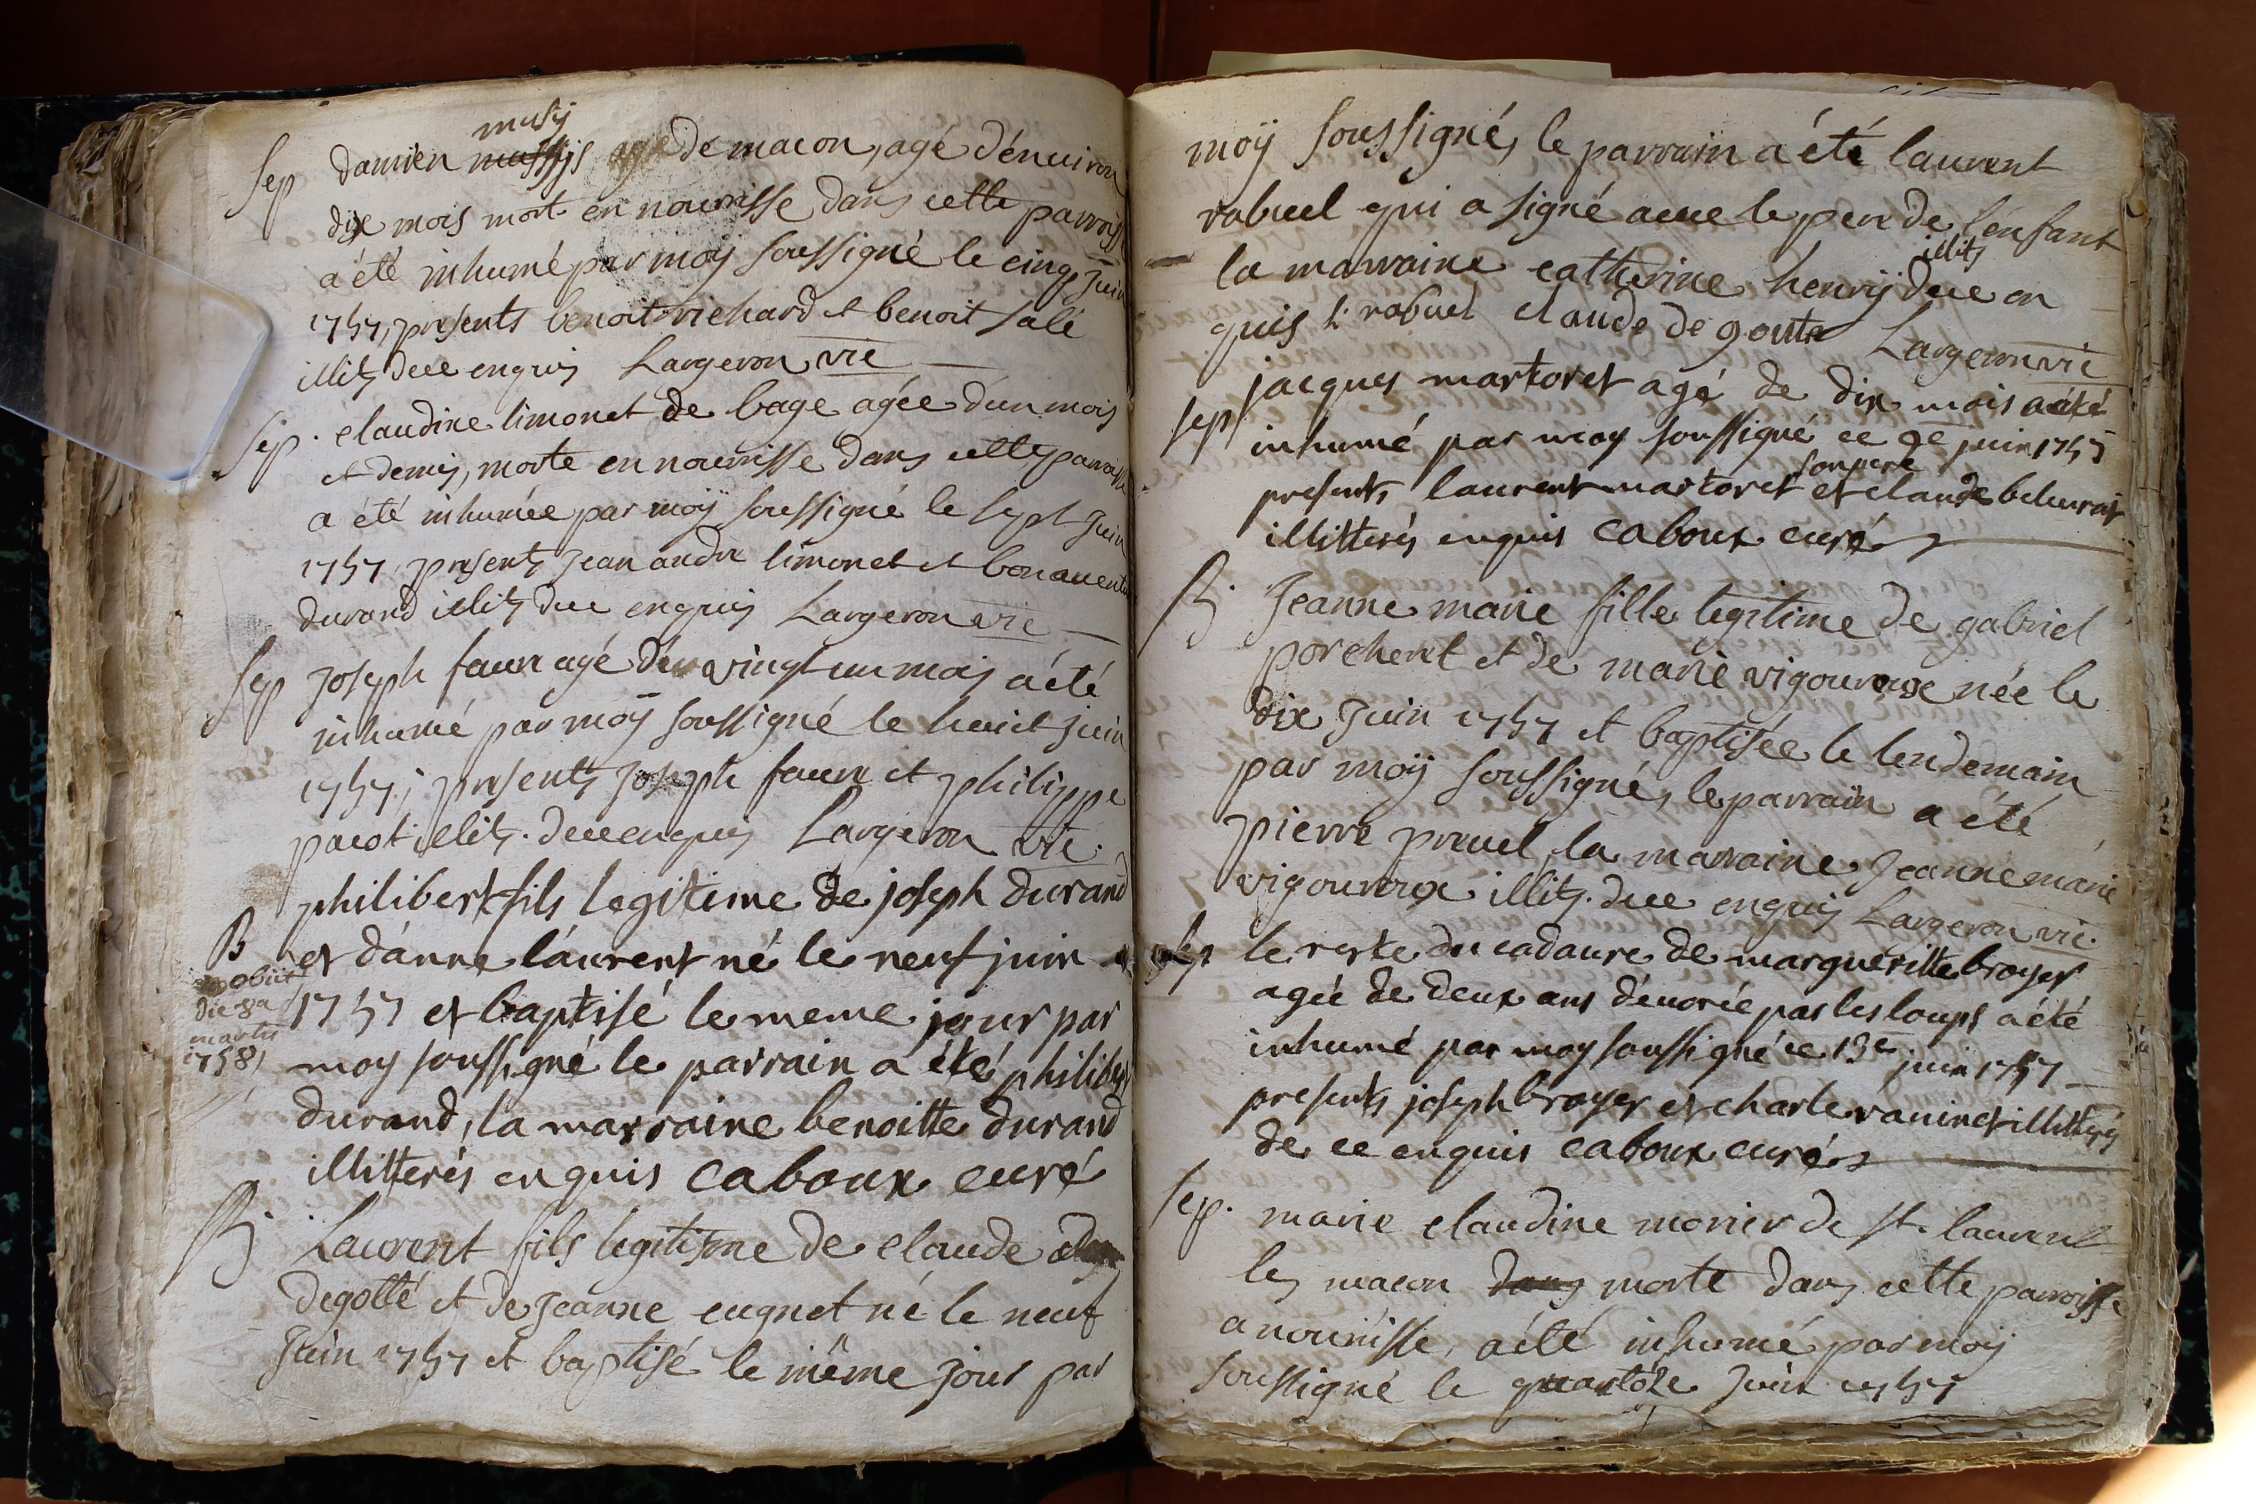 musy
Sep damien mussys agé de macon, agé d'énuiron
dix mois mort en nourrisse dans cette parroisse
a été inhumé par moÿ soussigné le cinq Juin
1757, presents benoit richard et benoit salé
illits de ce enquis Largeron vic
Sep. claudine limonet de bage agée d'un mois
et demis, morte en nourrisse dans cette parroisse
a été inhumée par moÿ soussigné le sept Juin
1757, presents Jean andre limonet et bonauentu
durand illits de ce enquis Largeron vic
Sep Joseph faure agé de vingt un mois a été
inhumé par moÿ soussigné le huict juin
1757; presents Joseph faure et philippe
pacot illits. de ce enquis Largeron vic.
philibert fils legitime de joseph durand
B et d'anne laurent né le neuf juin
obiit
die 8a
martis
1758
1757 et baptisé le meme jour par
moy soussigné le parrain a été philibert
durand, la marraine benoitte durand
illitterés enquis caboux curé
B. Laurent fils legitisme de claude
degotté et de Jeanne cugnet né le neuf
Juin 1757 et baptisé le même jour par
moÿ soussigné, le parrain a été laurent
rabuel qui a signé auec le pere de l'énfant
la marraine catherine henrÿ illits de ce en
quis l. rabuel claude de goute Largeron vic
Sep jacques martoret agé de dix mois a été
inhumé par moy soussigné ce 9e juin 1757
presents laurent martoret son pere et claude
illitterés enquis caboux curé
B. Jeanne marie fille legitime de gabriel
porcheret et de marie vigoureux née le
dix Juin 1757 et baptisée le lendemain
par moÿ soussigné, le parrain a été
pierre preuel, la marraine Jeanne marie
vigoureux illits. de ce enquis Largeron vic.
Sep le reste du cadaure de marguéritte broyer
agée de deux ans déuorée par les loups a été
inhumé par moy soussigné ce 13e juin 1757
presents joseph broyer et charle raninet illitterés
de ce enquis caboux curé
Sep. marie claudine monier de st. laurent
les macon dans morte dans cette parroisse
a nourrisse, a été inhumé par moÿ
soussigné le quartoze Juin 1757